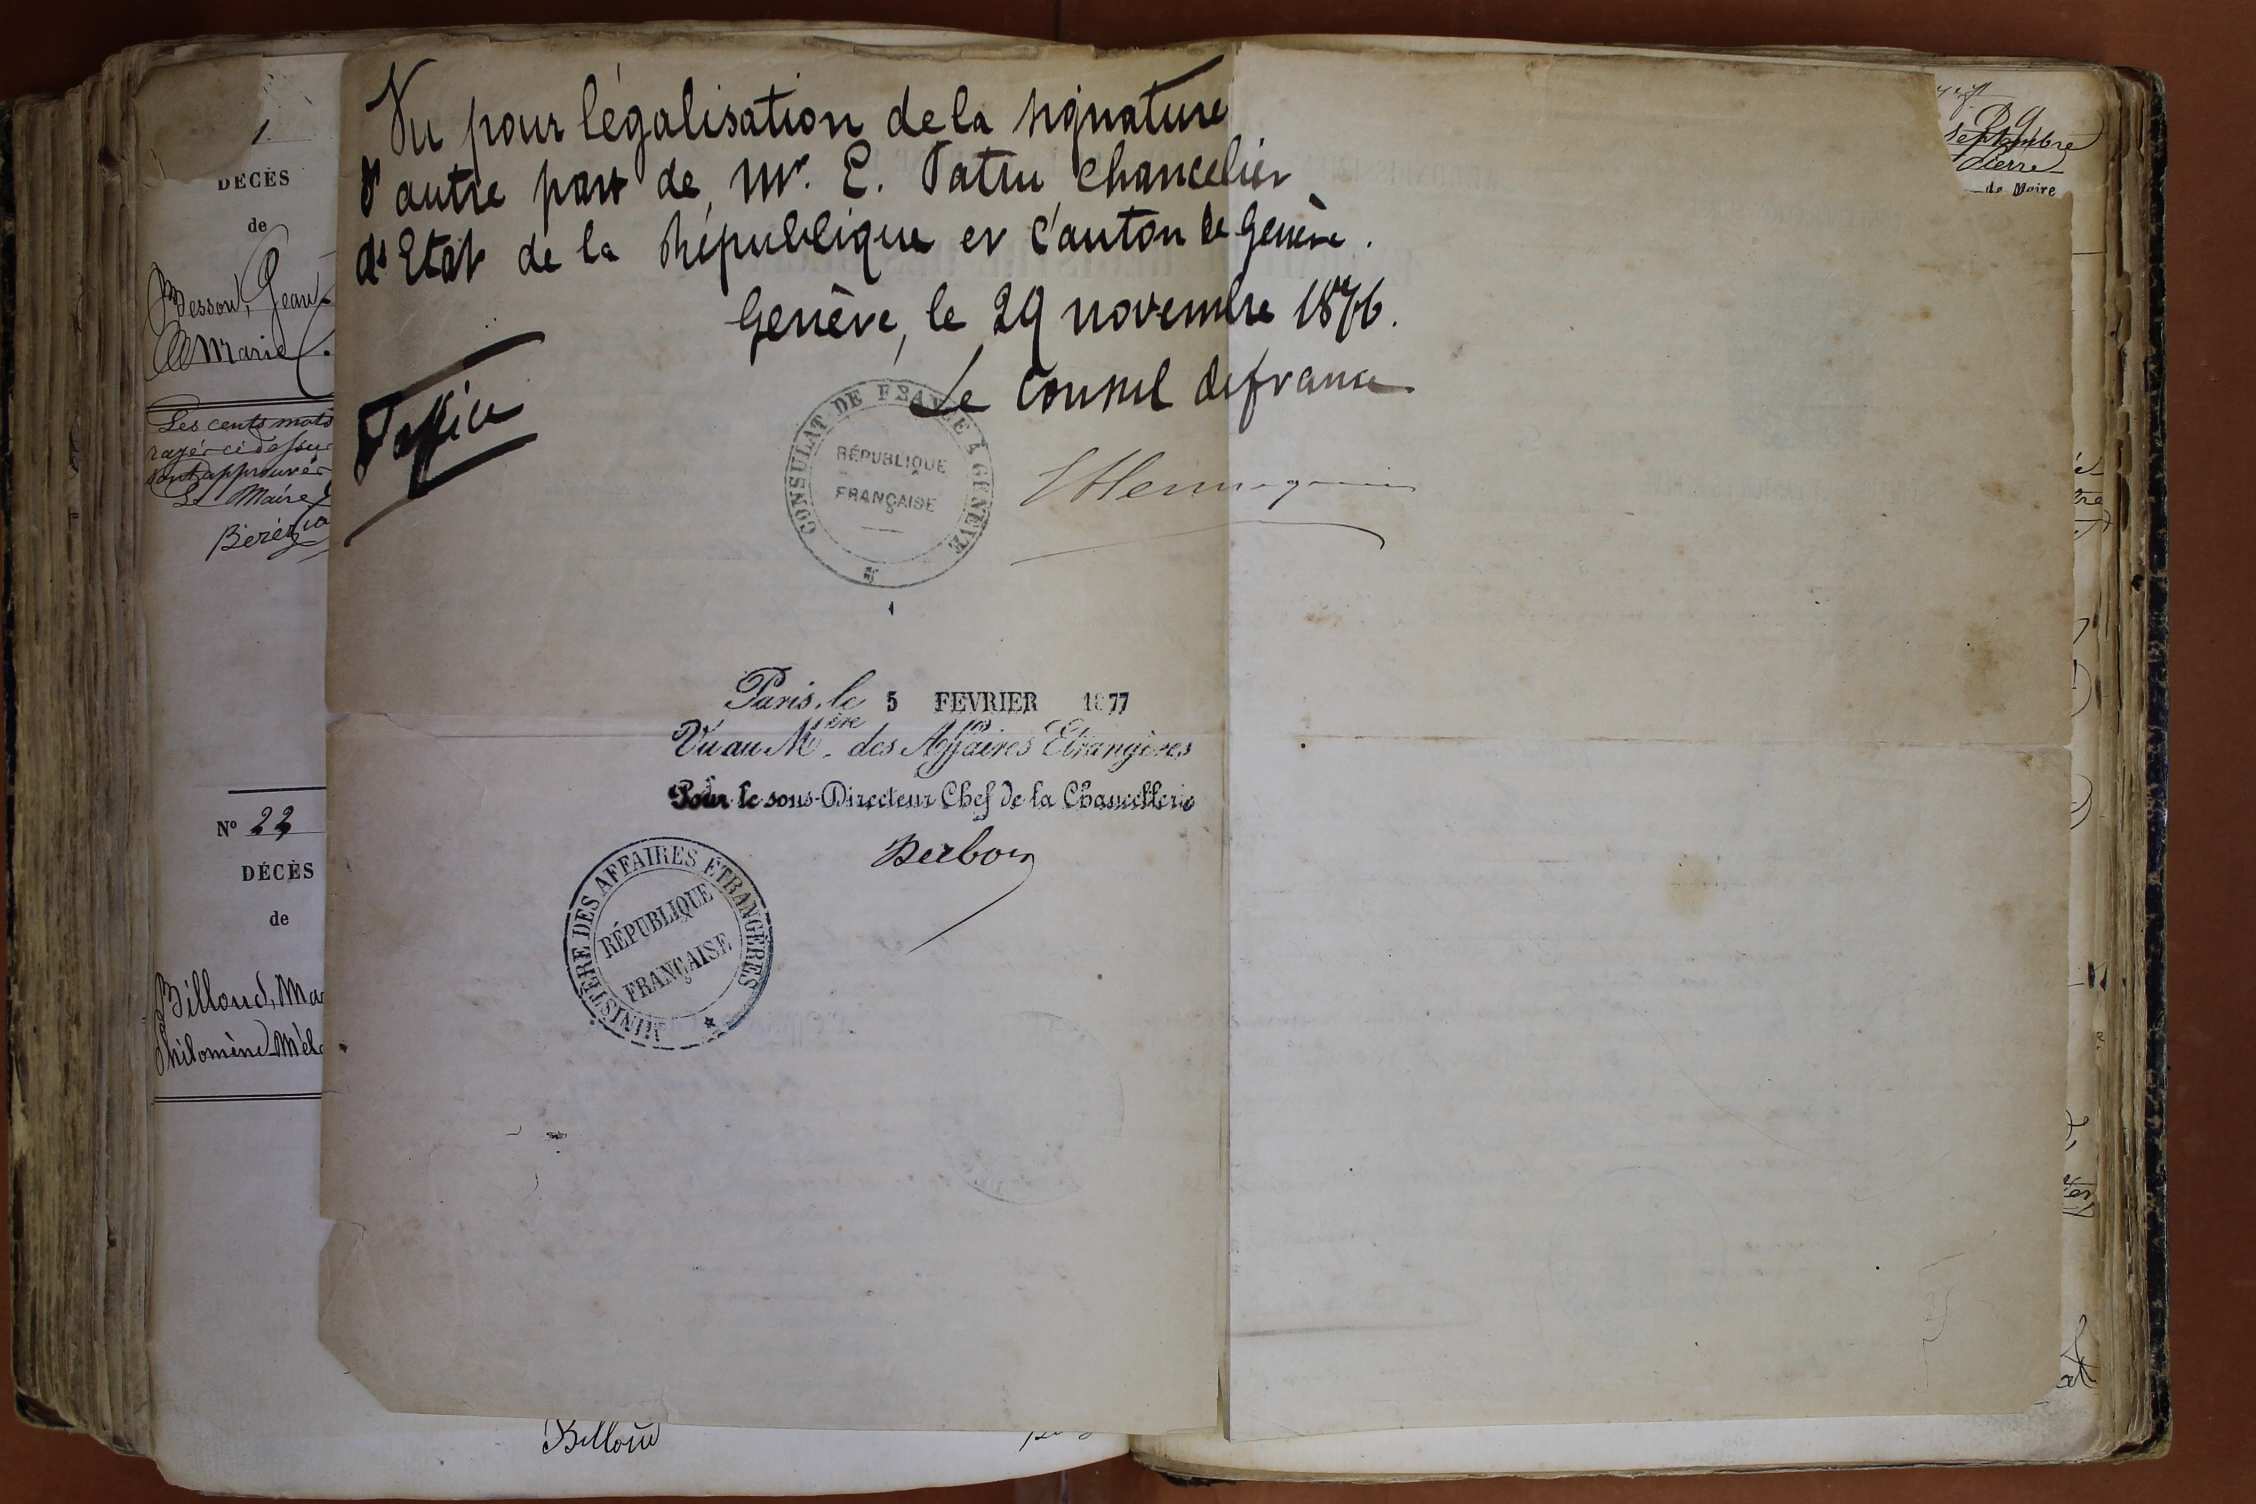 1
DÉCÈS
de
Besson, Jean
Marie.
Les cents mots
rayés ci dessus
sont approuvés
Le Maire
Nº 22
DÉCÈS
de
Billoud, Mar
Philomène Méla
Vu pour légalisation de la signature
d'autre part de Mr. E. Patru Chancelier
d'Etat de la République et Canton de Genève.
Genève, le 29 novembre 1876.
Le Consul de france
Office
CONSULAT DE FRANCE À GENÈVE
RÉPUBLIQUE
FRANÇAISE
1
Paris, le 5 FEVRIER 1877
Vu au Mère. des Affaires Etrangères
Pour le sous-Directeur Chef de la Chancellerie
MINISTÈRE DES AFFAIRES ETRANGÈRES
RÉPUBLIQUE
FRANÇAISE
Billoud
septembre
Pierre
de Maire